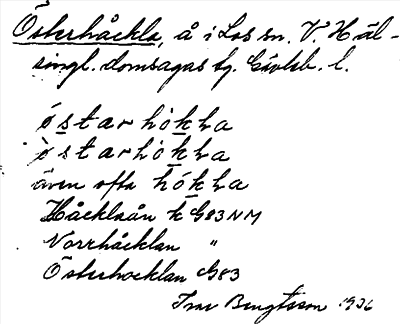 Österhåckla, å i Los sn. V. Häl-
singl. domsagas tg. Gävleb. l.
östarhòkka
òstarhòkka
även ofta hókka
Håcklaån k G83NM
Norrhåcklan "
Österhocklan G83
Ivar Bengtsson 1936